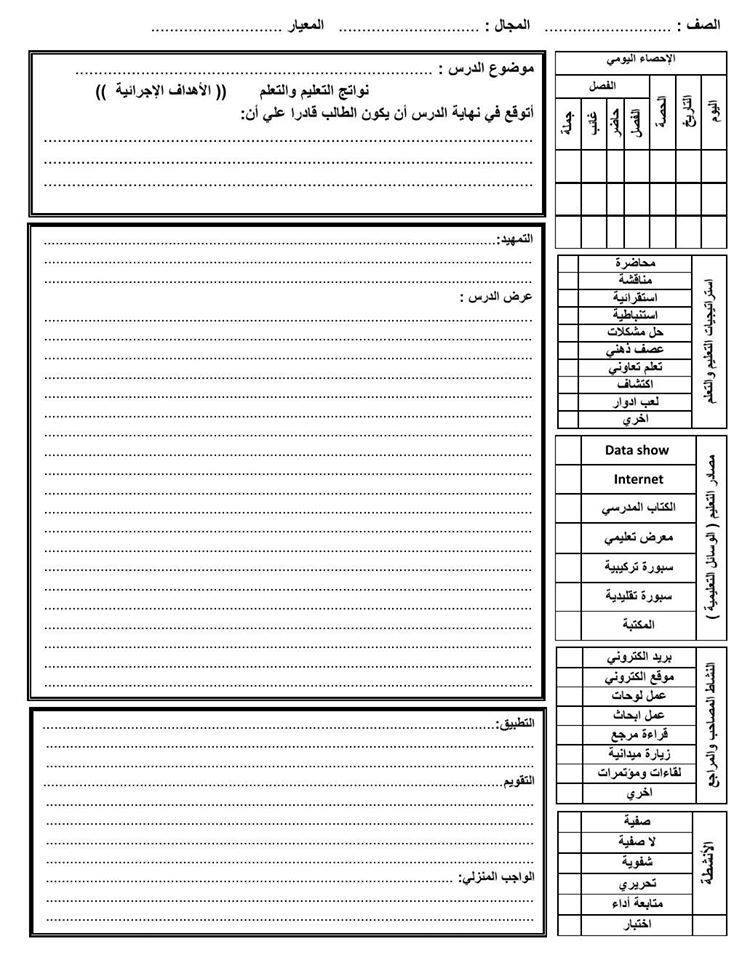 الصف : ............................ المجال : ............................... المعيار .............................
موضوع الدرس : ...............................................................................
نواتج التعليم والتعلم (( الأهداف الإجرائية ))
أتوقع في نهاية الدرس أن يكون الطالب قادرا علي أن:
التمهيد:
عرض الدرس :
التطبيق:
التقويم
الواجب المنزلي:
الإحصاء اليومي
اليوم
التاريخ
الحصة
الفصل
الفصل
حاضر
غائب
جملة
استراتيجيات التعليم والتعلم
محاضرة
مناقشة
استقرائية
استنباطية
حل مشكلات
عصف ذهني
تعلم تعاوني
اكتشاف
لعب ادوار
اخري
مصادر التعليم ( الوسائل التعليمية )
Data show
Internet
الكتاب المدرسي
معرض تعليمي
سبورة تركيبية
سبورة تقليدية
المكتبة
النشاط المصاحب والمراجع
بريد الكتروني
موقع الكتروني
عمل لوحات
عمل ابحاث
قراءة مرجع
زيارة ميدانية
لقاءات ومؤتمرات
اخري
الأنشطة
صفية
لا صفية
شفوية
تحريري
متابعة أداء
اختبار